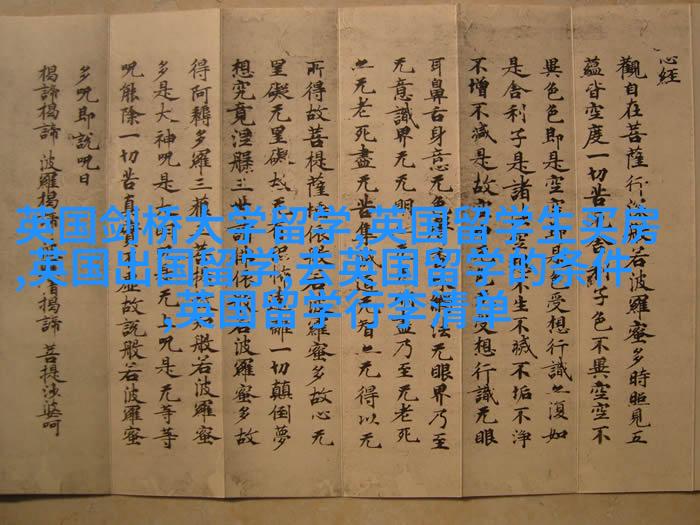 心经
觀自在菩薩行深般若波羅蜜多時照見五
蘊皆空度一切苦舍利子色不異空空不
異色色即是空空即是色受想行識亦復如
是舍利子是諸法空不生不滅不垢不淨
不增不減是故空受想行識无眼
耳鼻舌身意无色法无眼界乃至
无意識界无无明盡乃至无老死
亦无老死盡无苦集滅道无智亦无得以无
所得故菩提薩埵依般若波羅蜜多故心无
罣礙无罣礙故无有恐怖離一切顛倒夢
想究竟涅槃三世諸依般若波羅蜜多故
得阿耨多羅三菩提般若波羅蜜
多是大神呪是大呪是无上呪是无等等
呪能除一切苦真實不虛故說般若波羅蜜
多呪即說呪曰
揭諦揭諦 波羅揭諦 僧揭諦 菩提莎婆呵
英国剑桥大学留学,英国留学生买房
,英国出国留学,去英国留学的条件
,英国留学行李清单